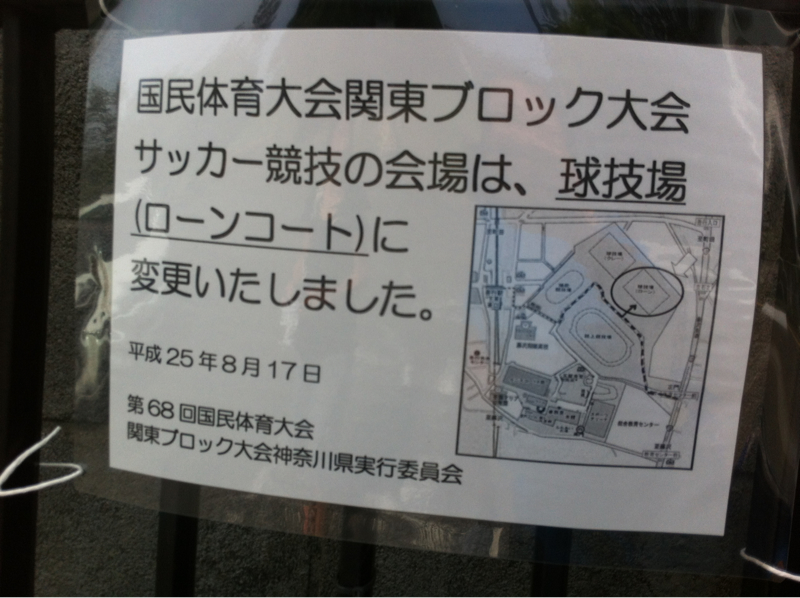 国民体育大会関東ブロック大会
サッカー競技の会場は、球技場
(ローンコート)に
変更いたしました。
平成25年8月17日
第68回国民体育大会
関東ブロック大会神奈川県実行委員会
球技場
球技場
陸上競技場
総合教育センター